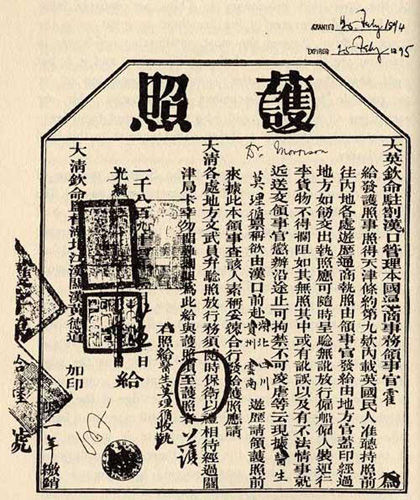 GRANTED 25 Feby 1894
EXPIRED 25 Feby 1895
護照
Dr. Morrison
大英欽命駐劄漢口管理本國通商事務官霍 為
給發護照事照得天津條約第九欵內載英國民人准聽持照前
往內地各處遊歷通商執照由領事官發給由地方官蓋印經過
地方如飭交出執照應可隨時呈驗無訛放行僱船僱人裝運行
李貨物不得攔阻如其無照其中或有訛誤以及有不法情事就
近送交領事官懲辦沿途止可拘禁不可凌虐等云現據醫生
莫理循稟稱欲由漢口前赴湖北四川貴州雲南遊歷請領護照前
來據此本領事查該人素稱妥練合行發給護照應請
大清各處地方文武員弁驗照放行務須隨時保衛以禮相待經過關
津局卡幸勿為此給與護照須至護照者
護
右照給醫生莫理循收執
一千八百九十 日 給
光緒
大清欽命湖北江漢關漢黃德道 加印
限一年繳銷